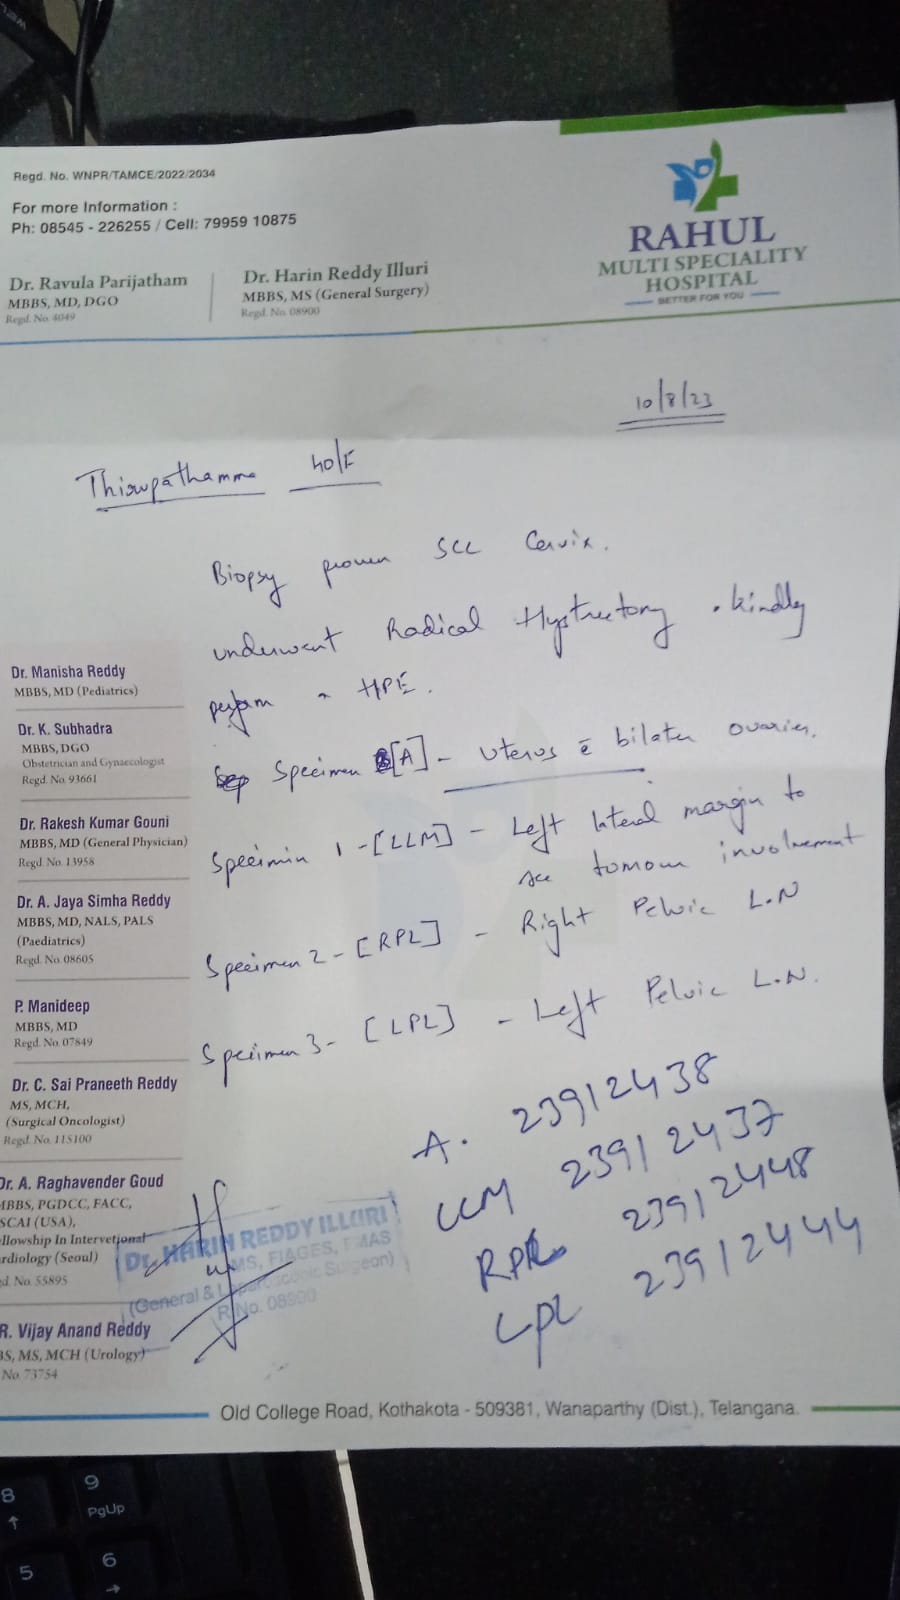 Regd. No. WNPR/TAMCE/2022/2034
For more Information :
Ph: 08545 - 226255 / Cell: 79959 10875
Dr. Ravula Parijatham
MBBS, MD, DGO
Regd. No. 4049
Dr. Harin Reddy Illuri
MBBS, MS (General Surgery)
Regd. No. 08900
RAHUL
MULTI SPECIALITY
HOSPITAL
BETTER FOR YOU
10/8/23
Thirupathamma 40/F
Biopsy proven SCC Cervix.
underwent Radical Hystrectomy . kindly
perform a HPE.
Specimen [A] - Uterus c̄ bilater ovaries.
Specimin 1 - [LLM] - Left lateral margin to
see tumour involvement
Specimen 2 - [RPL] - Right Pelvic L.N
Specimen 3 - [LPL] - Left Pelvic L.N.
A. 23912438
LLM 23912437
RPL 23912448
LPL 23912444
Dr. Manisha Reddy
MBBS, MD (Pediatrics)
Dr. K. Subhadra
MBBS, DGO
Obstetrician and Gynaecologist
Regd. No. 93661
Dr. Rakesh Kumar Gouni
MBBS, MD (General Physician)
Regd. No. 13958
Dr. A. Jaya Simha Reddy
MBBS, MD, NALS, PALS
(Paediatrics)
Regd. No. 08605
P. Manideep
MBBS, MD
Regd. No. 07849
Dr. C. Sai Praneeth Reddy
MS, MCH,
(Surgical Oncologist)
Regd. No. 115100
Dr. A. Raghavender Goud
MBBS, PGDCC, FACC,
SCAI (USA),
llowship In Intervetional
rdiology (Seoul)
d. No. 55895
R. Vijay Anand Reddy
BS, MS, MCH (Urology)
No. 73754
Dr. HARIN REDDY ILLURI
MS, FIAGES, FMAS
(General & Laparoscopic Surgeon)
R.No. 08900
Old College Road, Kothakota - 509381, Wanaparthy (Dist.), Telangana.
8
9
PgUp
5
6